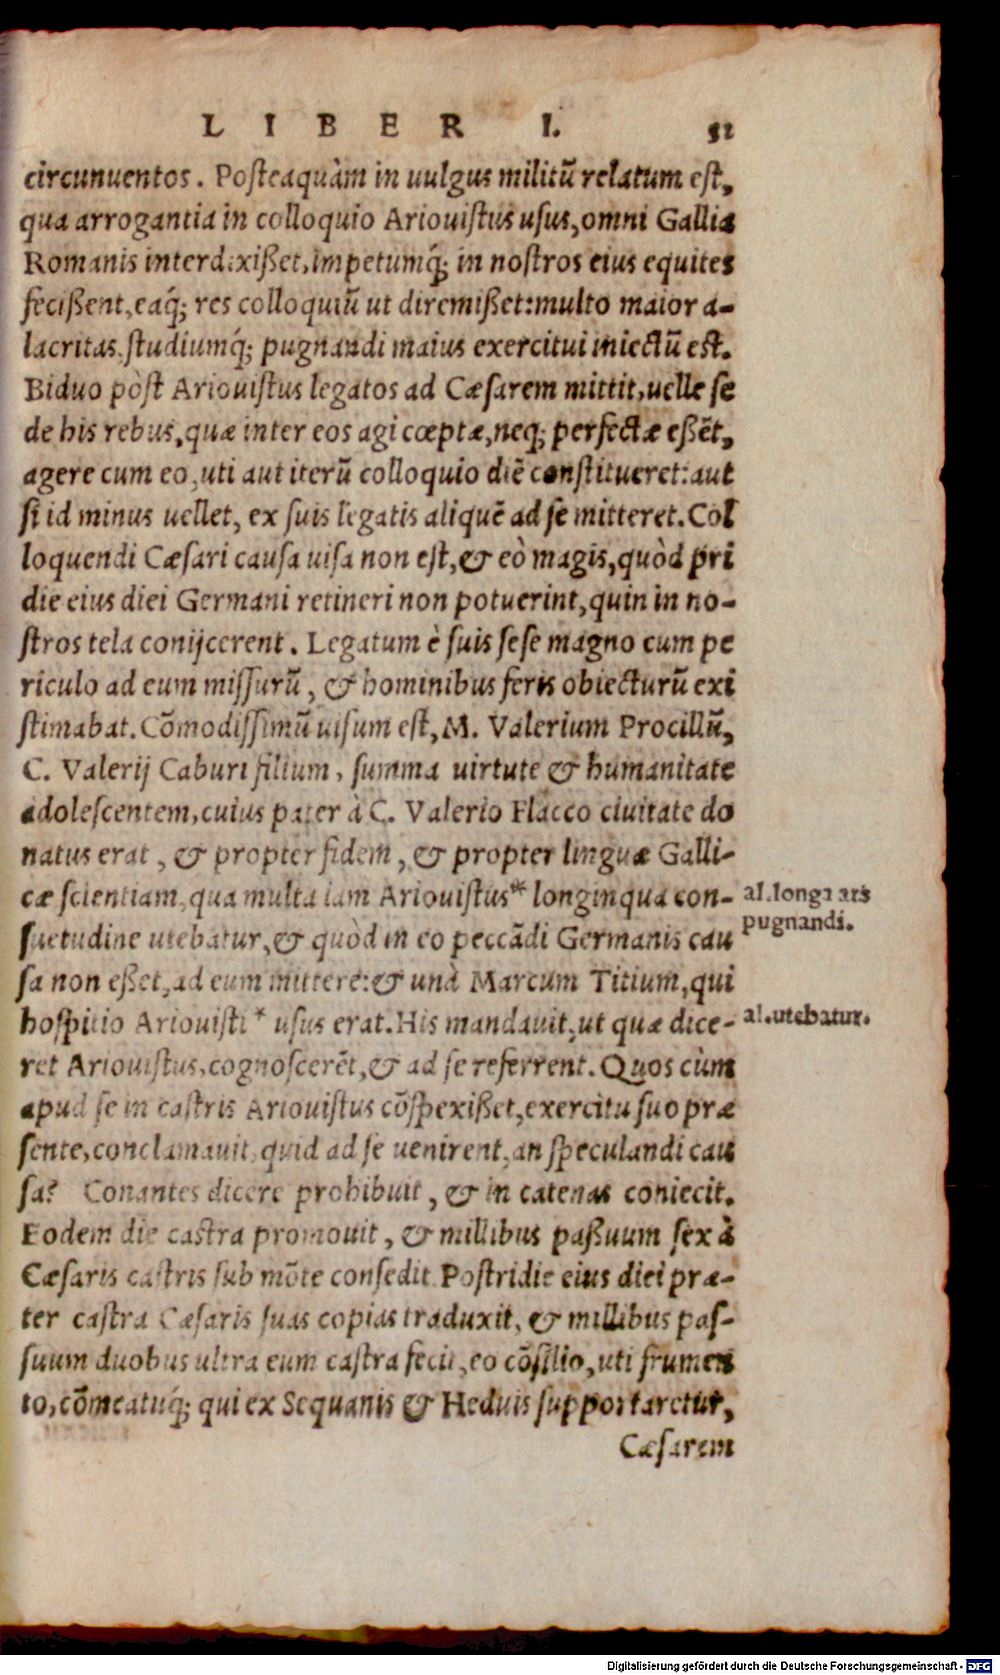 LIBER I. 51
circunuentos. Posteaquàm in uulgus militũ relatum est,
qua arrogantia in colloquio Ariouistus usus, omni Gallia
Romanis interdixißet, impetumq́; in nostros eius equites
fecißent, eaq́; res colloquiũ ut diremißet: multo maior a-
lacritas, studiumq́; pugnandi maius exercitui iniectũ est.
Biduo pòst Ariouistus legatos ad Cæsarem mittit, uelle se
de his rebus, quæ inter eos agi cœptæ, neq; perfectæ eßẽt,
agere cum eo, uti aut iterũ colloquio diẽ constitueret: aut
si id minus uellet, ex suis legatis aliquẽ ad se mitteret. Col
loquendi Cæsari causa uisa non est, & eò magis, quòd pri
die eius diei Germani retineri non potuerint, quin in no-
stros tela conijcerent. Legatum è suis sese magno cum pe
riculo ad eum missurũ, & hominibus feris obiecturũ exi
stimabat. Cõmodissimũ uisum est, M. Valerium Procillũ,
C. Valerij Caburi filium, summa uirtute & humanitate
adolescentem, cuius pater à C. Valerio Flacco ciuitate do
natus erat, & propter fidem, & propter linguæ Galli-
cæ scientiam, qua multa iam Ariouistus* longinqua con-
suetudine utebatur, & quòd in eo peccãdi Germanis cau
sa non eßet, ad eum mittere: & unà Marcum Titium, qui
hospitio Ariouisti* usus erat. His mandauit, ut quæ dice-
ret Ariouistus, cognoscerẽt, & ad se referrent. Quos cùm
apud se in castris Ariouistus cõspexißet, exercitu suo præ
sente, conclamauit, quid ad se uenirent, an speculandi cau
sa? Conantes dicere prohibuit, & in catenas coniecit.
Eodem die castra promouit, & millibus paßuum sex à
Cæsaris castris sub mõte consedit. Postridie eius diei præ-
ter castra Cæsaris suas copias traduxit, & millibus pas-
suum duobus ultra eum castra fecit, eo cõsilio, uti frumen
to, cõmeatuq́; qui ex Sequanis & Heduis supportaretur,
Cæsarem
al. longa ars
pugnandi.
al. utebatur.
Digitalisierung gefördert durch die Deutsche Forschungsgemeinschaft - DFG